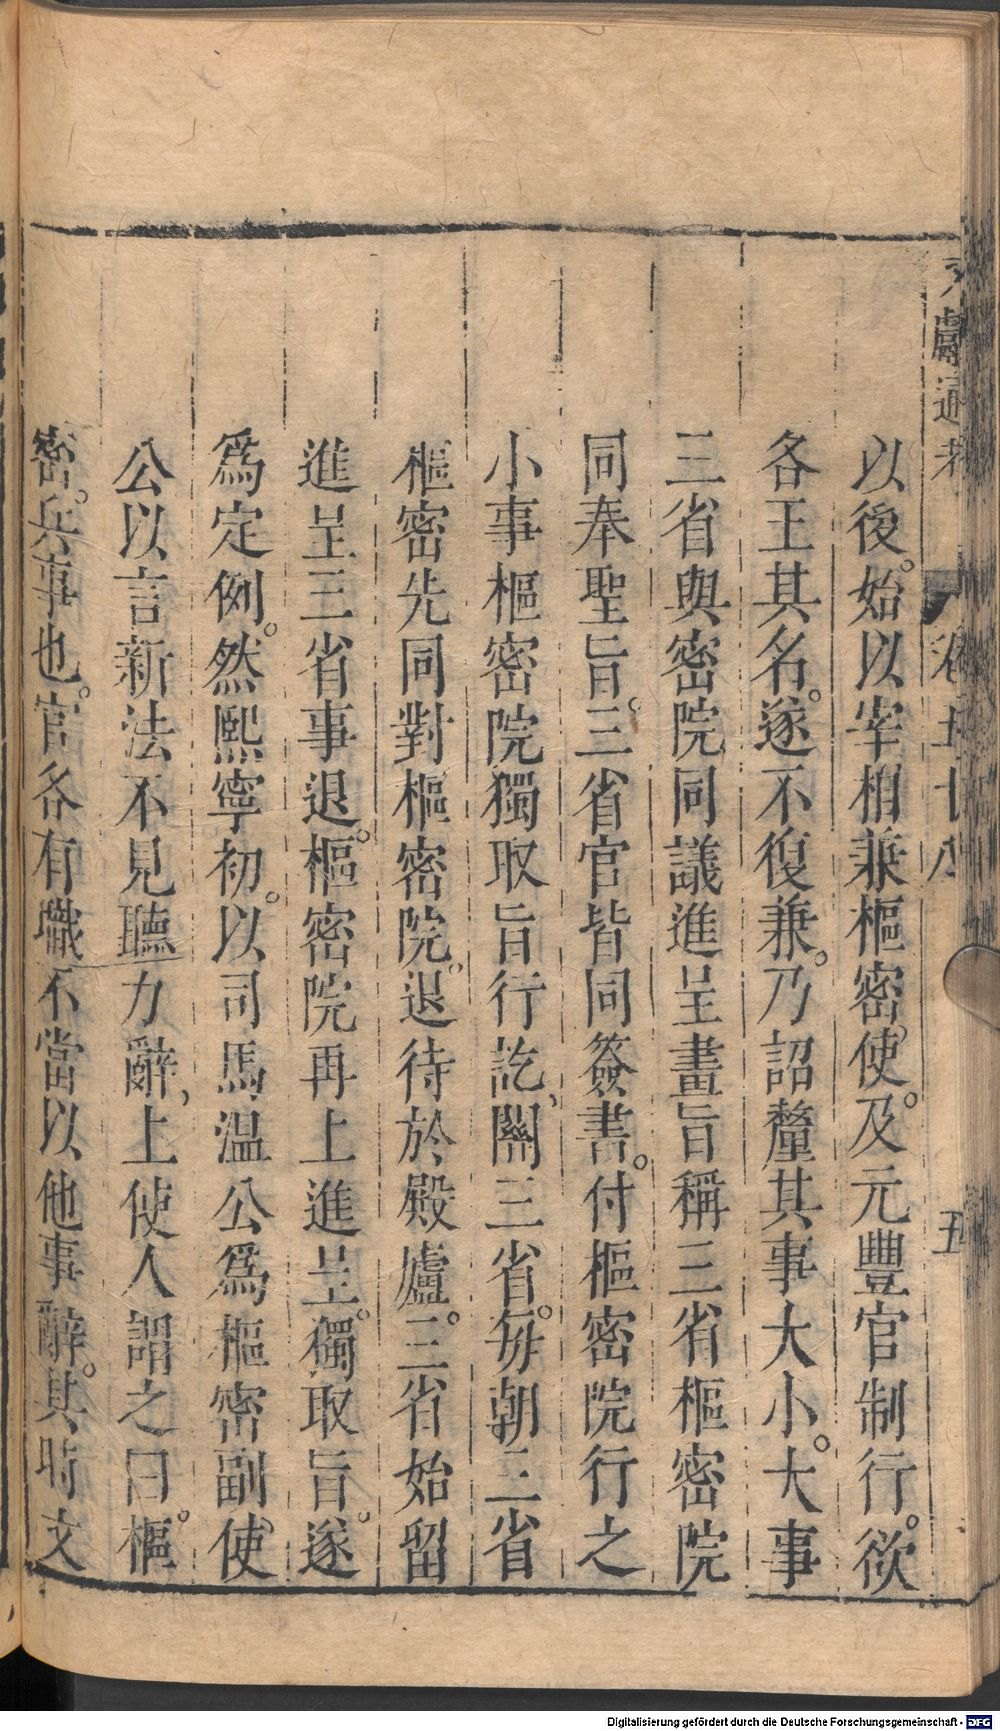 文獻通考 卷五十八 五
以後。始以宰相兼樞密使。及元豐官制行。欲
各王其名。遂不復兼。乃詔釐其事大小。大事
三省與密院同議進呈畫旨稱三省樞密院
同奉聖旨。三省官皆同簽書。付樞密院行之
小事樞密院獨取旨行訖、關三省。每朝三省
樞密先同對樞密院、退待於殿廬。三省始留
進呈三省事退。樞密院再上進呈。獨取旨。遂
爲定例。然熙寧初。以司馬温公爲樞密副使
公以言新法不見聽力辭、上使人謂之曰。樞
密。兵事也。官各有職不當以他事辭。其時文
Digitalisierung gefördert durch die Deutsche Forschungsgemeinschaft - DFG